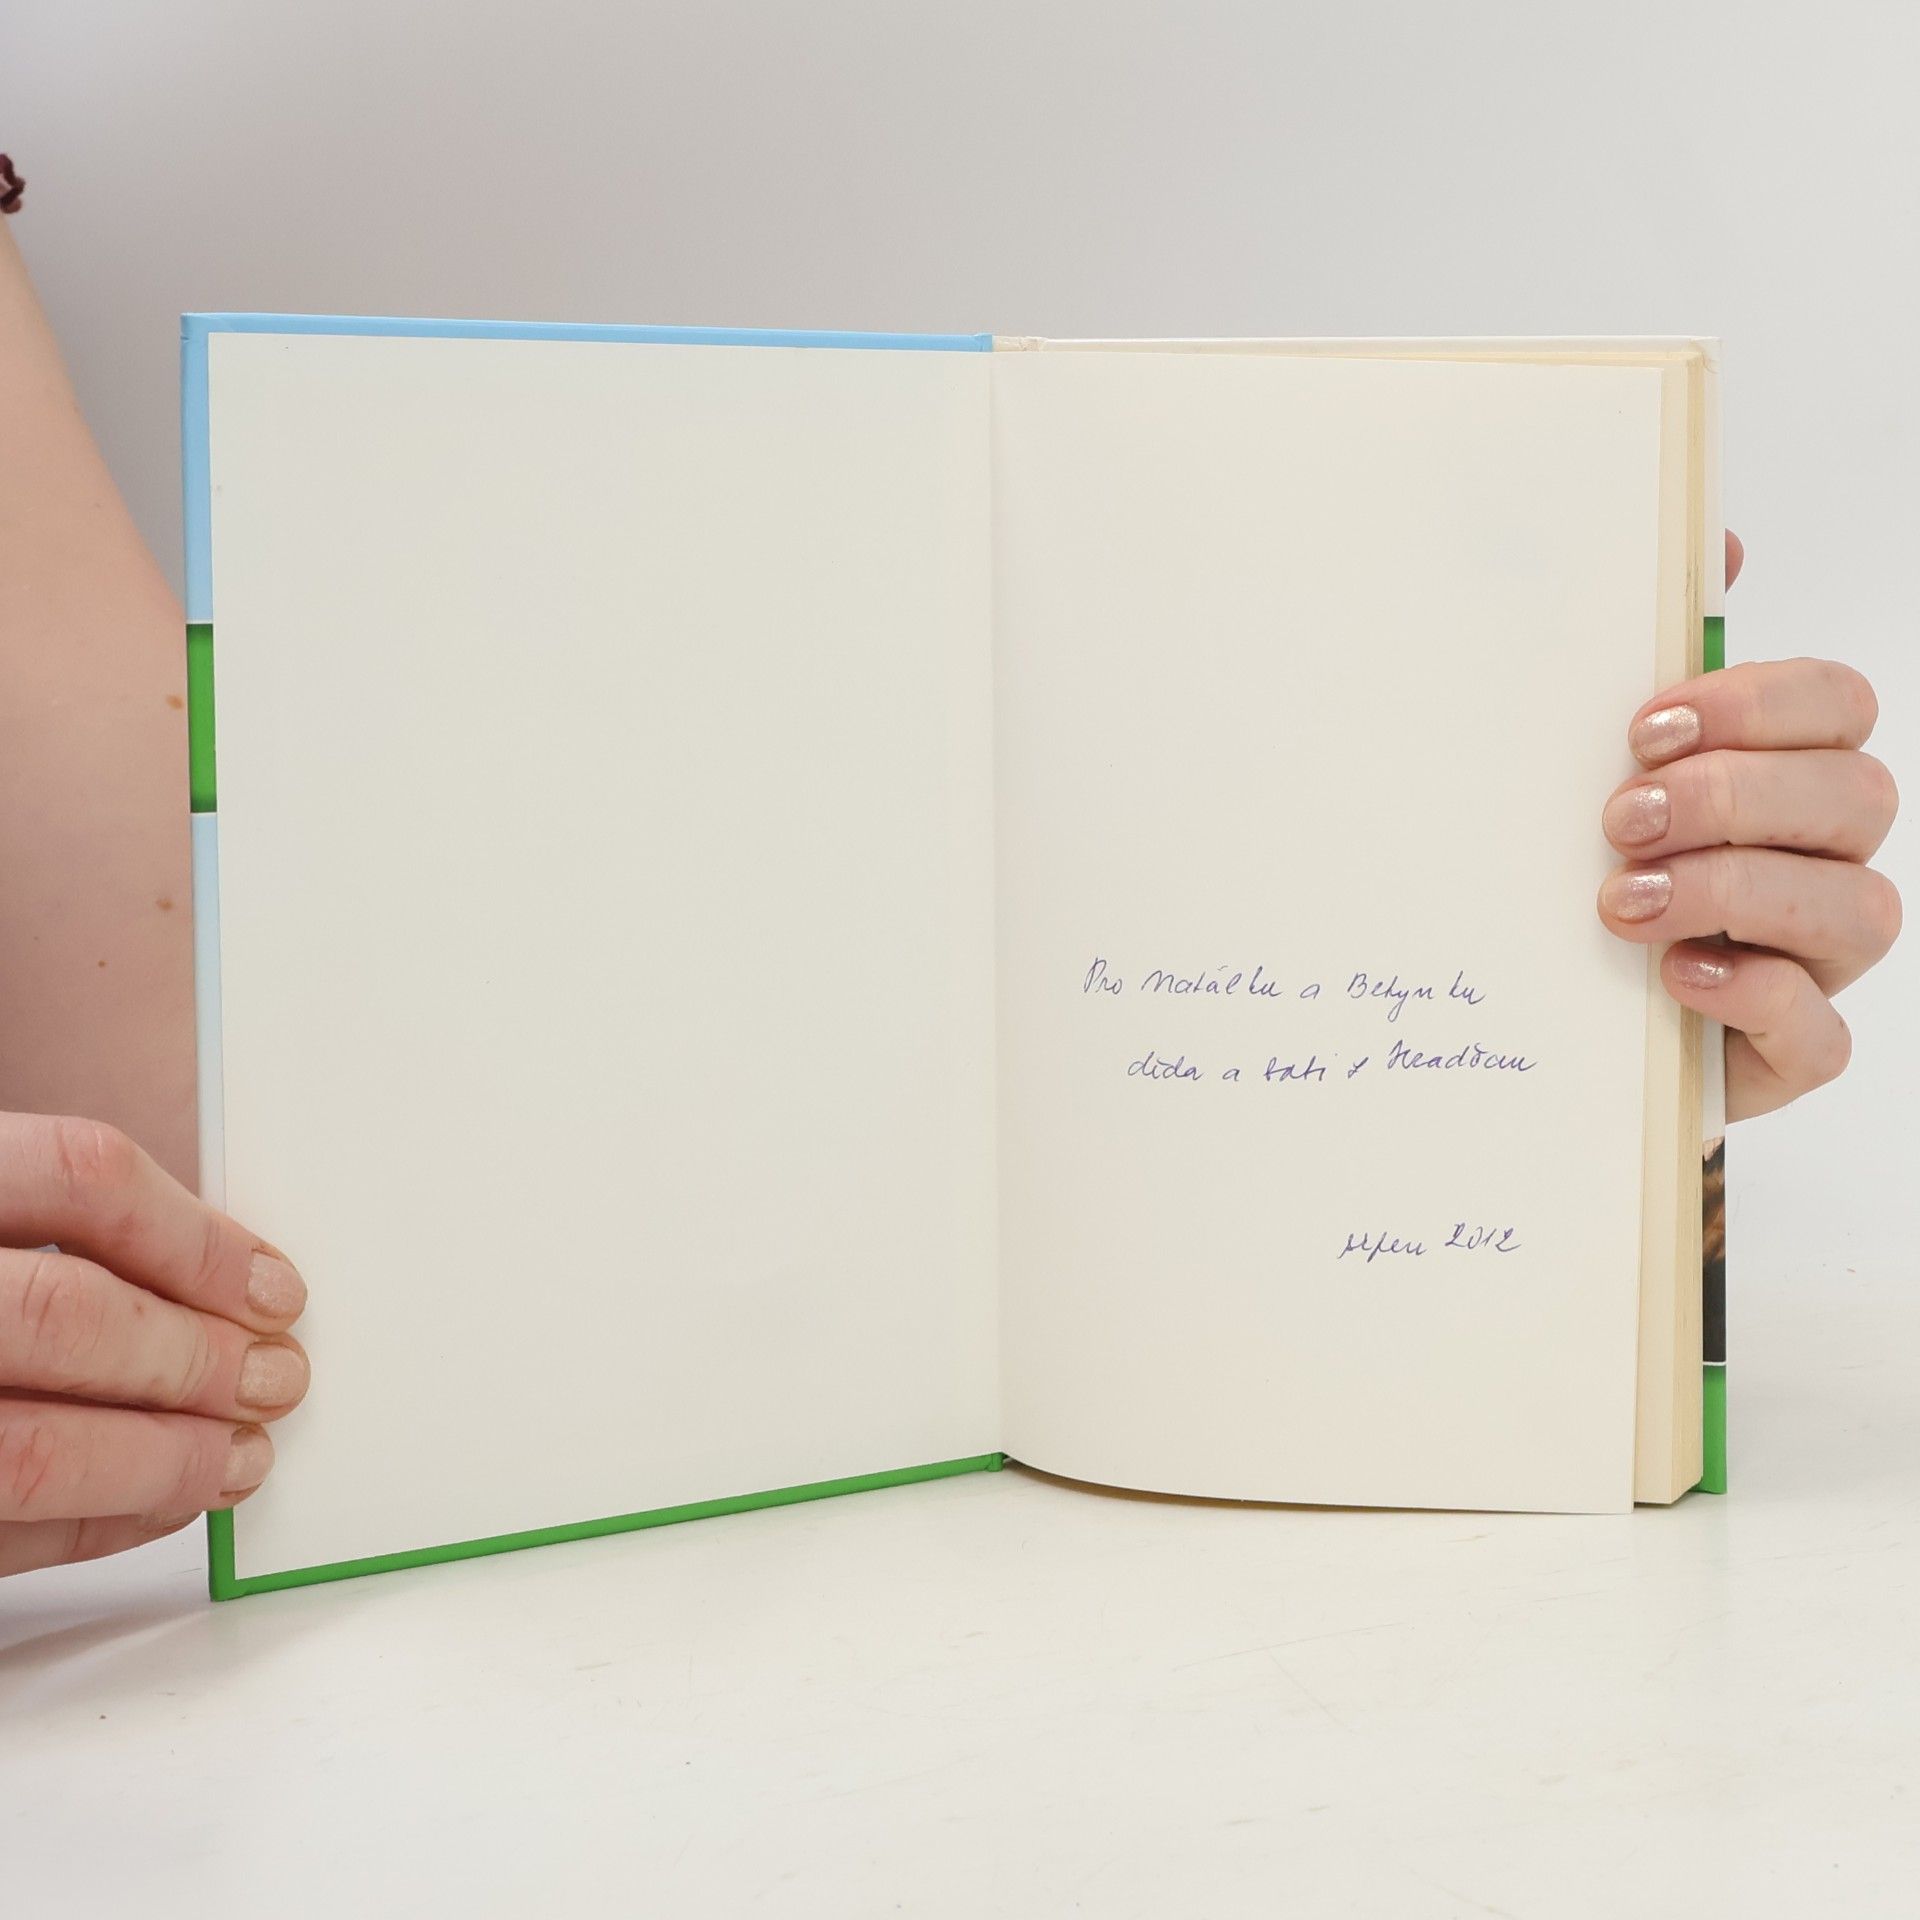 Pro Natálku a Betynku
děda a babi z Hradčan
srpen 2012